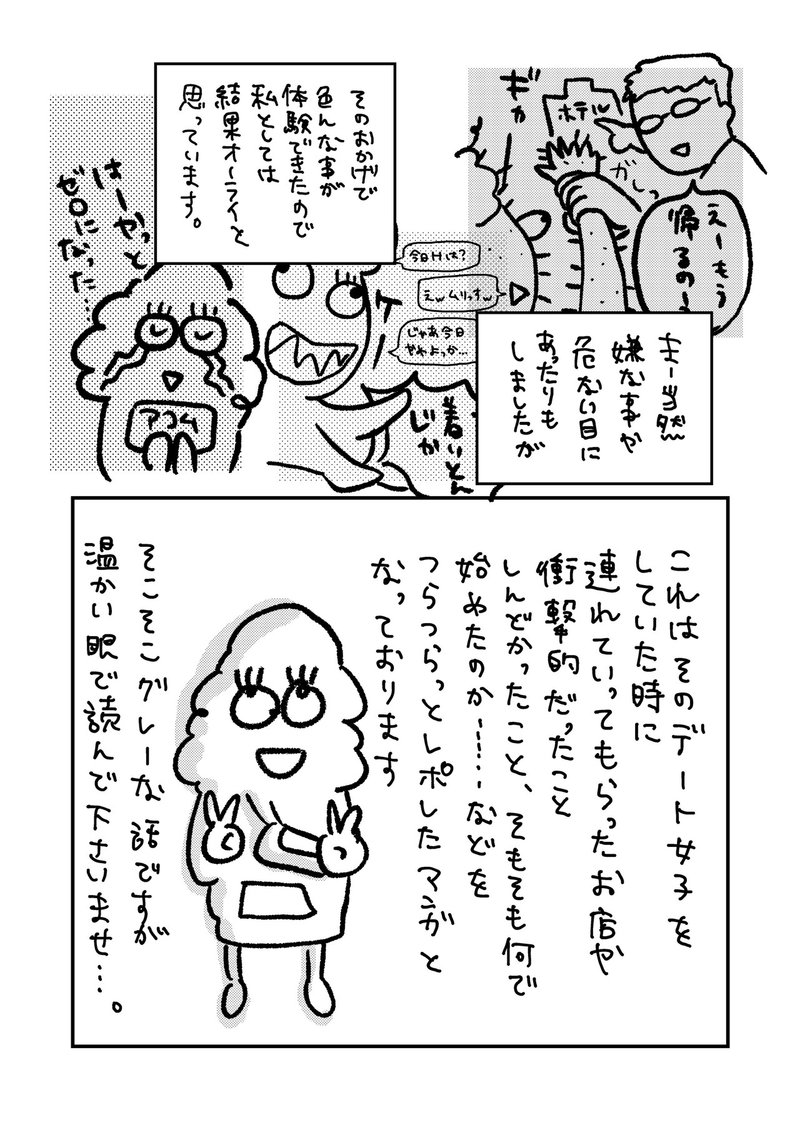 えーもう
帰るの〜
ホテル
ギュ
がしっ
まー当然
嫌な事や
危ない目に
あったりも
しましたが
今日Hは?
えwムリっすw
じゃあ今日
やめよっか…
着いとん
じか
そのおかげで
色んな事が
体験できたので
私としては
結果オーライと
思っています。
はーやっと
ゼロになった…
アコム
これはそのデート女子を
していた時に
連れていってもらったお店や
衝撃的だったこと
しんどかったこと、そもそも何で
始めたのか……などを
つらつらっとレポしたマンガと
なっております
そこそこグレーな話ですが
温かい眼で読んで下さいませ…。